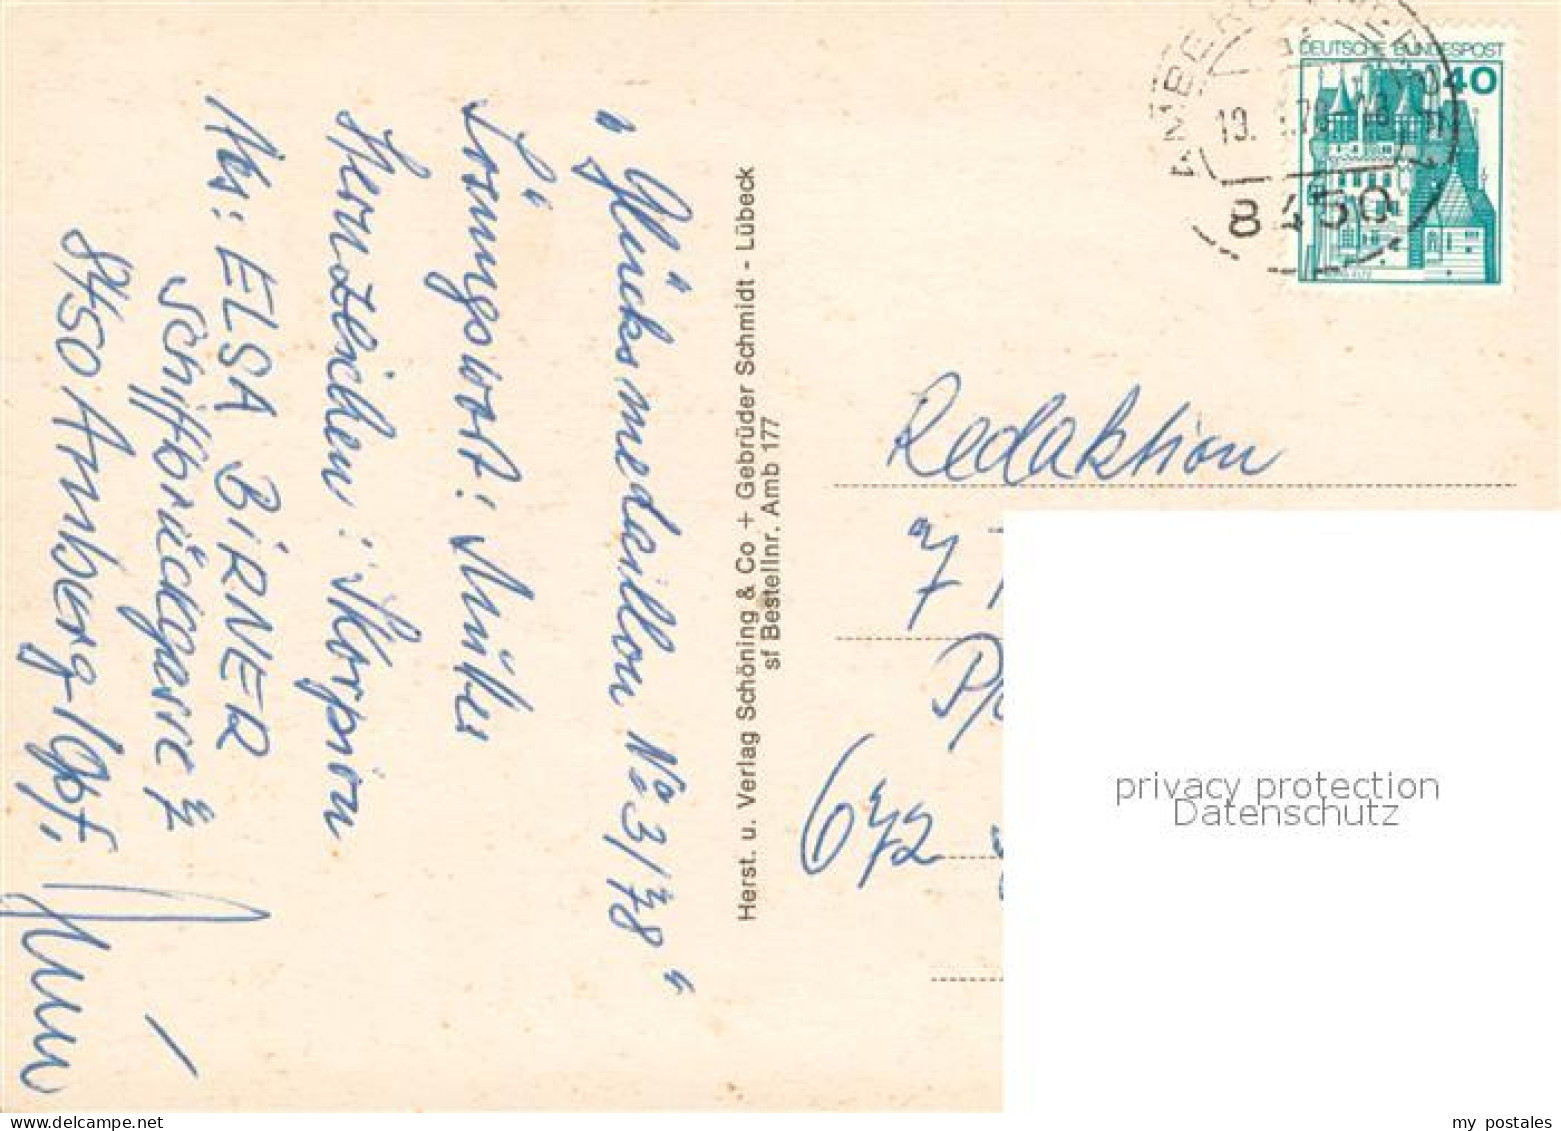 "Glücksmedaillon No 3/78"
Lösungswort: Mütter
Sternzeichen: Skorpion
Abs: ELSA BIRNER
Schiffbrückgasse 7
8450 Amberg/Opf.
Herst. u. Verlag Schöning & Co + Gebrüder Schmidt - Lübeck
sf Bestellnr. Amb 177
AMBERG
8450
DEUTSCHE BUNDESPOST
40
Redaktion
672
privacy protection
Datenschutz
my postales